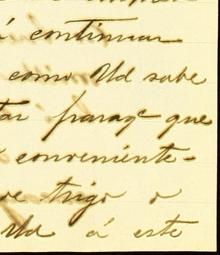 á continuar
como Ud sabe
tar paraq^e que
conveniente-
de trigo o
Ud á este